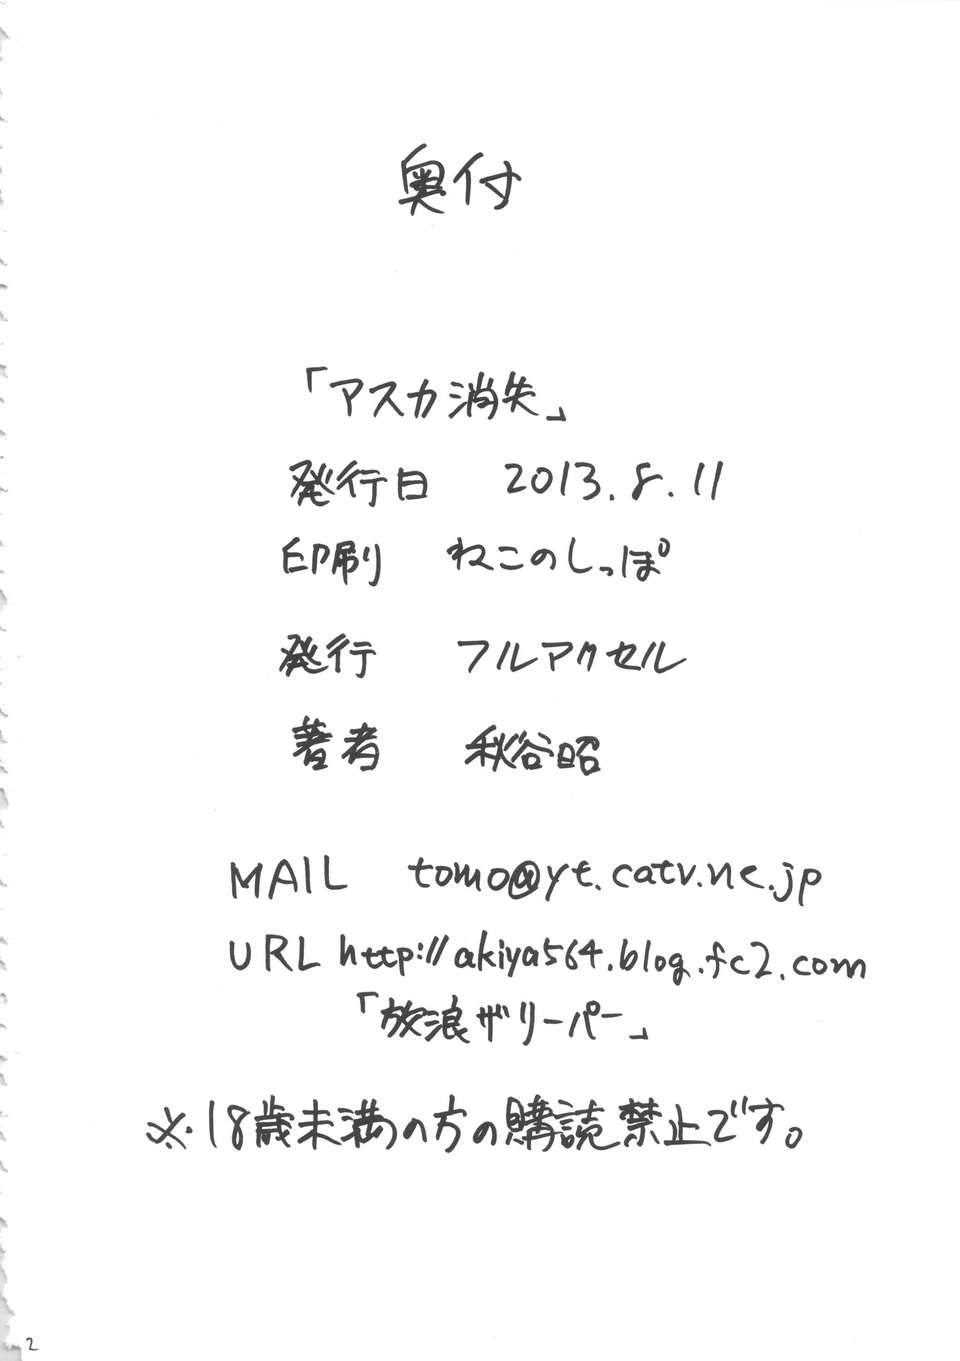 奥付
「アスカ消失」
発行日 2013.8.11
印刷 ねこのしっぽ
発行 フルアクセル
著者 秋谷昭
MAIL tomo@yt.catv.ne.jp
URL http://akiya564.blog.fc2.com
「放浪ザリーパー」
※18歳未満の方の購読禁止です。
2